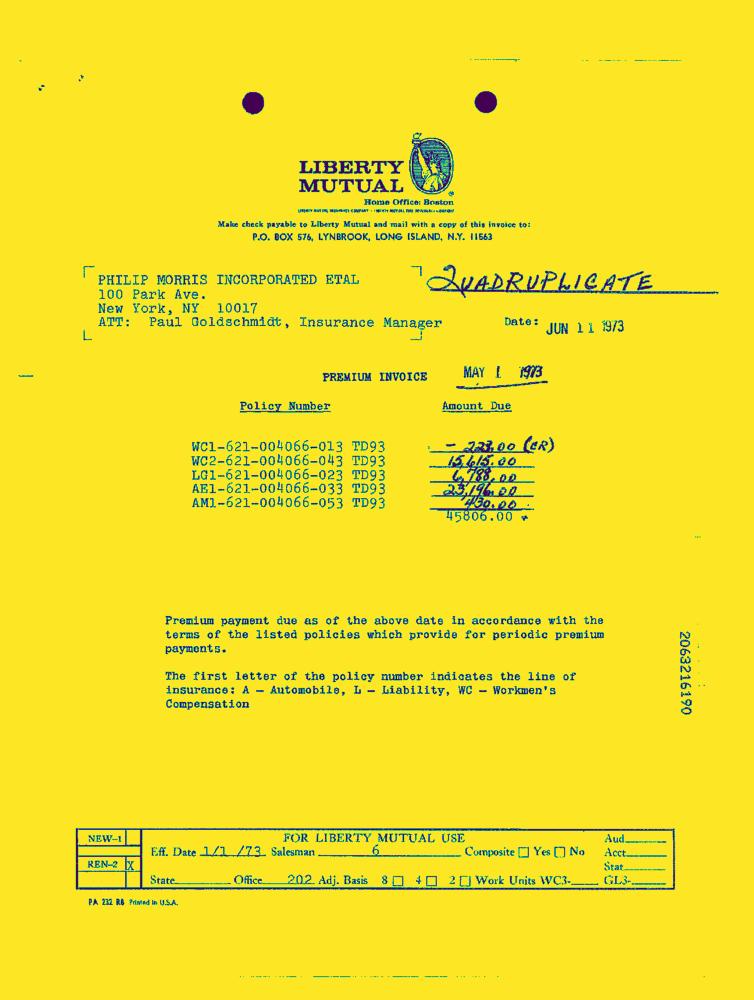 LIBERTY
MUTUAL
Home Office: Boston
Make check payable to Liberty Mutual and mail with a copy of this invoice to:
P.O. BOX 576, LYNBROOK, LONG ISLAND, N.Y. 11563
PHILIP MORRIS INCORPORATED ETAL
QUADRUPLICATE
100 Park Ave.
New York, NY 10017
ATT: Paul Goldschmidt, Insurance Manager
Date: JUN 11 1973
PREMIUM INVOICE MAY 1 1973
Policy Number Amount Due
WC1-621-004066-013 TD93 - 223.00 (CR)
WC2-621-004066-043 TD93 15,615.00
LG1-621-004066-023 TD93 6,788.00
AE1-621-004066-033 TD93 23,196.00
AM1-621-004066-053 TD93 430.00
45806.00 +
Premium payment due as of the above date in accordance with the
terms of the listed policies which provide for periodic premium
payments.
The first letter of the policy number indicates the line of
insurance: A - Automobile, L - Liability, WC - Workmen's
Compensation
2063216190
NEW-1 FOR LIBERTY MUTUAL USE Aud.
Eff. Date 1/1 /73 Salesman 6 Composite Yes No Acct.
REN-2 X Stat.
State Office 202 Adj. Basis 8 4 2 Work Units WC3- GL3-
PA 232 R8 Printed in U.S.A.